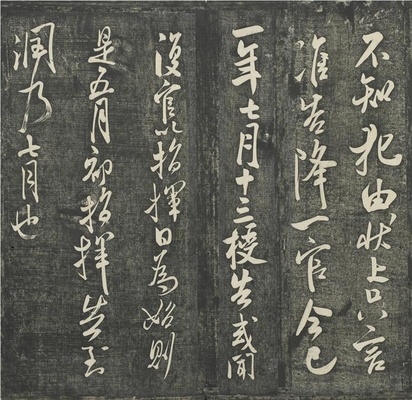 不知犯由状上只言
准告降一官今已
一年七月十三授告或聞
復官以指揮日為始則
是五月初指揮告至
潤乃七月也